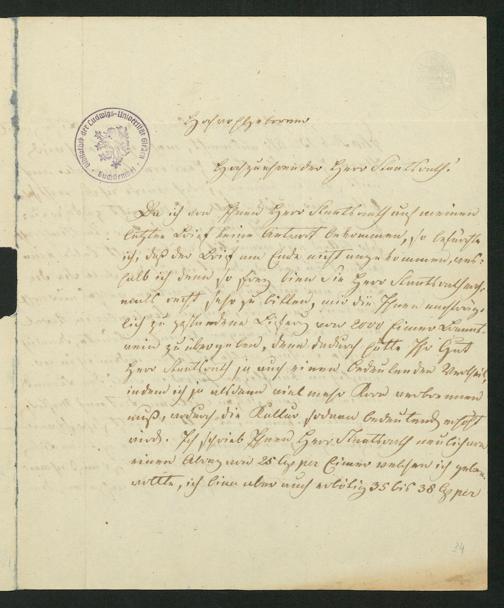 Hochwohlgeborener
Hochzuehrender Herr Staatsrath!
Da ich von Ihnen Herr Staatsrath auf meinen
letzten Brief keine Antwort bekommen, so befürchte
ich, daß der Brief am Ende nicht angekommen, wes-
halb ich denn so frey bin Sie Herr Staatsrath noch-
mals recht sehr zu bitten, mir die Ihnen
lich zu Lieferung von 2000 Eimer Brannt-
wein zu übergeben, denn dadurch hätte Ihr Gut
Herr Staatsrath ja auch einen bedeutenden Vortheil,
indem ich ja alsdann viel mehr Korn verbrennen
muß, wodurch die Kultur sodann bedeutend erhöht
wird. Ich schrieb Ihnen Herr Staatsrath neulich von
einen von 25 Cop per Eimer welchen ich geben
wollte, ich bin aber auch erbötig 35 bis 38 Cop per
34
Bibliothek der Ludwigs-Universität Giessen